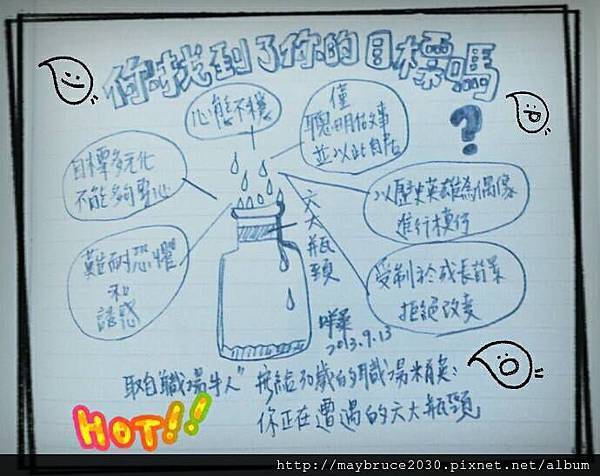 你找到了你的目標嗎
?
心態不穩
僅
聰明做事
並以此自居
目標多元化
不能夠專心
以歷史英雄為偶像
進行模仿
難耐恐懼
和
誘惑
六大瓶頸
受制於成長背景
拒絕改變
2013.9.13
取自職場牛人"接給30歲的職場精英:
你正在遭遇的六大瓶頸
HOT!!
http://maybruce2030.pixnet.net/album